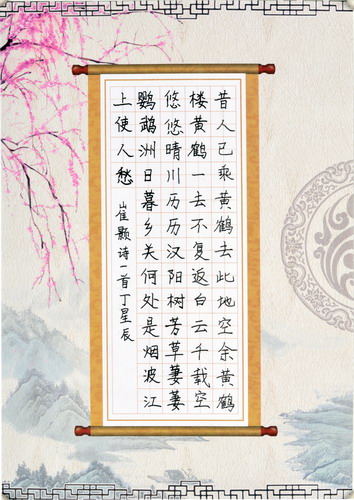 昔人已乘黄鹤去此地空余黄鹤
楼黄鹤一去不复返白云千载空
悠悠晴川历历汉阳树芳草萋萋
鹦鹉洲日暮乡关何处是烟波江
上使人愁 崔颢诗一首丁星辰